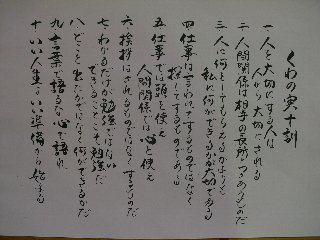 くわの実十訓
一 人を大切にする人は
人から大切にされる
二 人間関係は相手の長所とつきあうものだ
三 人に何をしてもらえるかよりも
私に何ができるかが大切である
四 仕事は言われてするものではなく
探してするものである
五 仕事では頭を使え
人間関係では心を使え
六 挨拶はされるものではなくするものだ
七 わかるだけが勉強ではない
できることこそ勉強だ
八 どこを出たかではなく何ができるかだ
九 言葉で語るな心で語れ
十 いい人生はいい準備から始まる